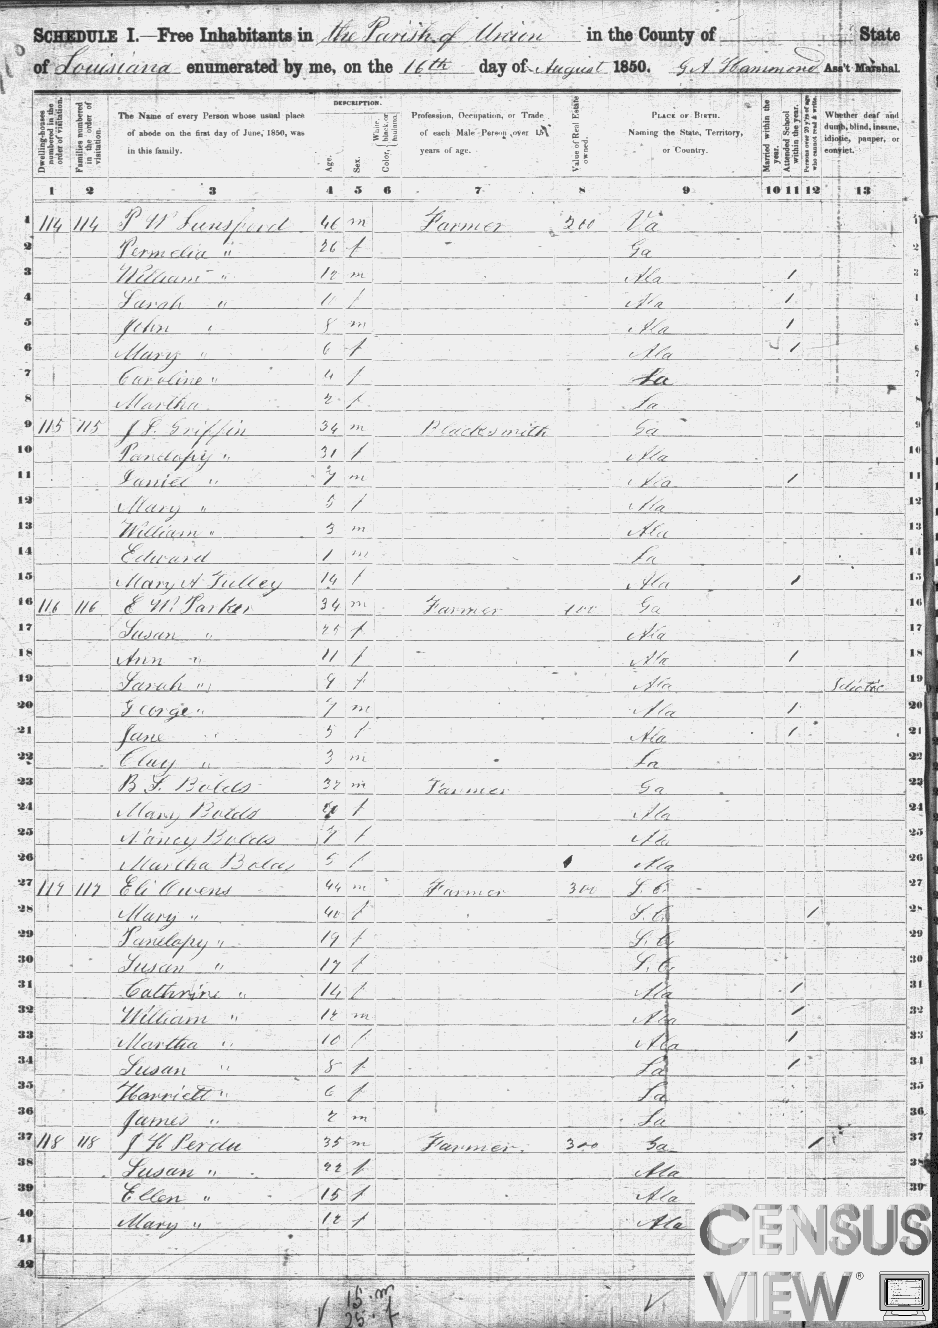 SCHEDULE I.—Free Inhabitants in the Parish of Union in the County of State
of Louisiana enumerated by me, on the 16th day of August 1850. G A Hammond Ass't Marshal.
Dwelling-houses numbered in the order of visitation.
Families numbered in the order of visitation.
The Name of every Person whose usual place of abode on the first day of June, 1850, was in this family.
DESCRIPTION.
Age.
Sex.
Color, White, black, or mulatto.
Profession, Occupation, or Trade of each Male Person over 15 years of age.
Value of Real Estate owned.
PLACE OF BIRTH. Naming the State, Territory, or Country.
Married within the year.
Attended School within the year.
Persons over 20 y'rs of age who cannot read & write.
Whether deaf and dumb, blind, insane, idiotic, pauper, or convict.
1 2 3 4 5 6 7 8 9 10 11 12 13
1 114 114 P W Lunsford 46 m Farmer 200 Va 1
2 Permelia " 26 f Ga 2
3 William " 12 m Ala / 3
4 Sarah " f Ala / 4
5 John " 8 m Ala / 5
6 Mary " 6 f Ala / 6
7 Caroline " 4 f La 7
8 Martha 2 f La 8
9 115 115 J L Griffin 34 m Blacksmith Ga 9
10 Pandopy " 31 f Ala 10
11 Daniel " 7 m Ala / 11
12 Mary " 5 f Ala 12
13 William " 3 m Ala 13
14 Edward 1 m La 14
15 Mary A Tulley 14 f Ala / 15
16 116 116 E W Parker 34 m Farmer 100 Ga 16
17 Susan " f Ala 17
18 Ann " 11 f Ala / 18
19 Sarah " 9 f Ala Idiotic 19
20 George " 7 m Ala / 20
21 Jane " 5 f Ala / 21
22 Clay " 3 m La 22
23 B F Bolds 32 m Farmer Ga 23
24 Mary Bolds f Ala 24
25 Nancy Bolds 7 f Ala 25
26 Martha Bolds 5 f Ala 26
27 117 117 Eli Owens 44 m Farmer 300 S.C. 27
28 Mary " 40 f S.C. / 28
29 Pandopy " 19 f S.C. 29
30 Susan " 17 f S.C. 30
31 Cathrine " 14 f Ala / 31
32 William " 12 m Ala / 32
33 Martha " 10 f Ala / 33
34 Susan " 8 f La / 34
35 Harriett " 6 f La 35
36 James " 2 m La 36
37 118 118 J H Perdu 35 m Farmer. 300 Ga / 37
38 Susan " 22 f Ala 38
39 Ellen " 15 f Ala 39
40 Mary " 12 f Ala
41
42
15 m
25 f
CENSUS
VIEW®